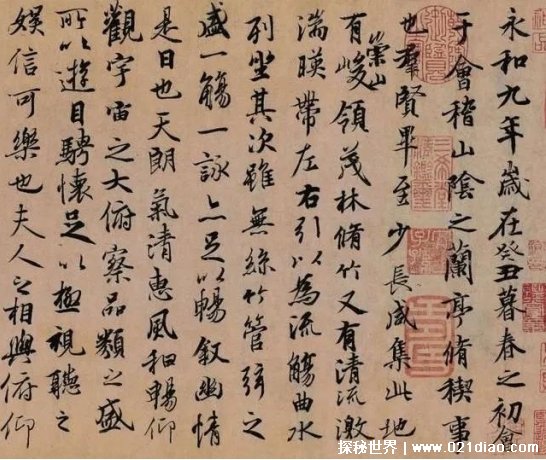 永和九年歲在癸丑暮春之初會
于會稽山陰之蘭亭脩稧事
也羣賢畢至少長咸集此地
有崇山峻領茂林脩竹又有清流激
湍暎帶左右引以為流觴曲水
列坐其次雖無絲竹管弦之
盛一觴一詠亦足以暢敘幽情
是日也天朗氣清惠風和暢仰
觀宇宙之大俯察品類之盛
所以遊目騁懷足以極視聽之
娛信可樂也夫人之相與俯仰
探秘世界|www.021diao.com